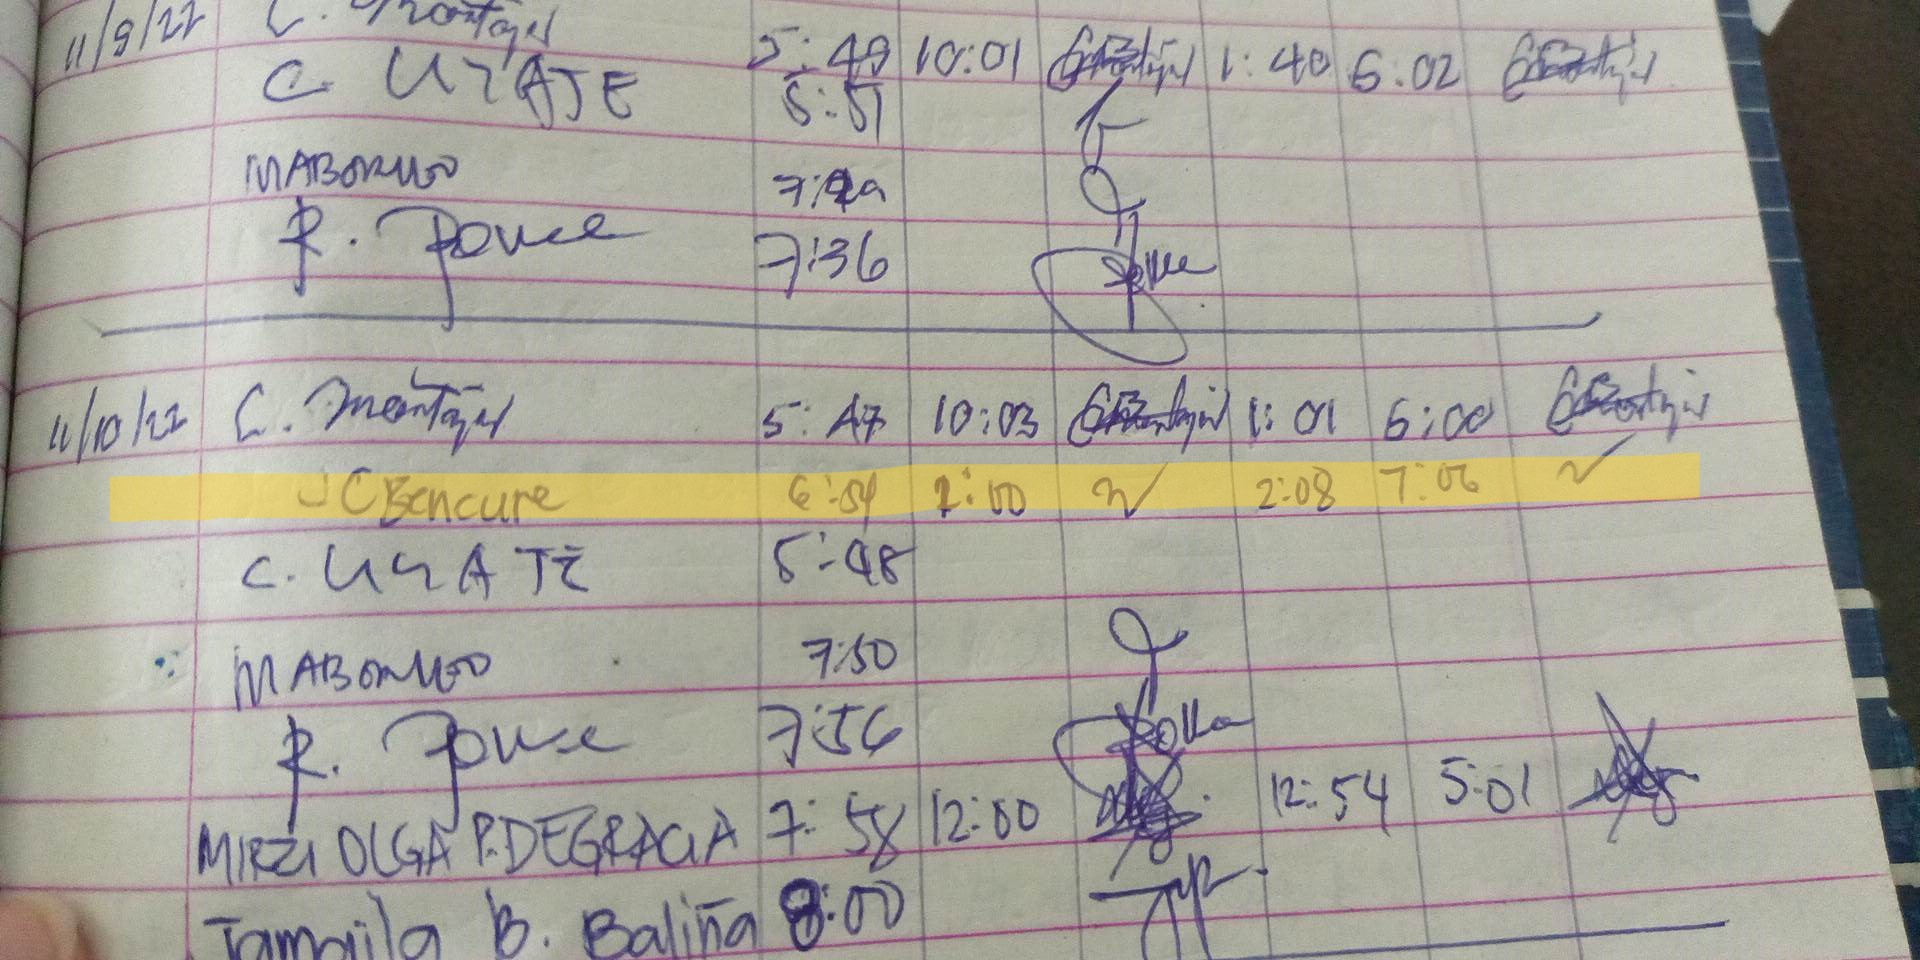 11/9/22 C. Montajes 5:49 10:01 1:40 6:02
C. UYATE 5:51
MABORUGO 7:29
R. Ponce 7:36
11/10/22 C. Montajes 5:47 10:03 1:01 6:00
JC Bencure 6:54 1:00 ✓ 2:08 7:06 ✓
C. UYATE 5:48
MABORUGO 7:50
R. Ponce 7:56
MIRZI OLGA P. DEGRACIA 7:58 12:00 12:54 5:01
Tamaila B. Baliña 8:00